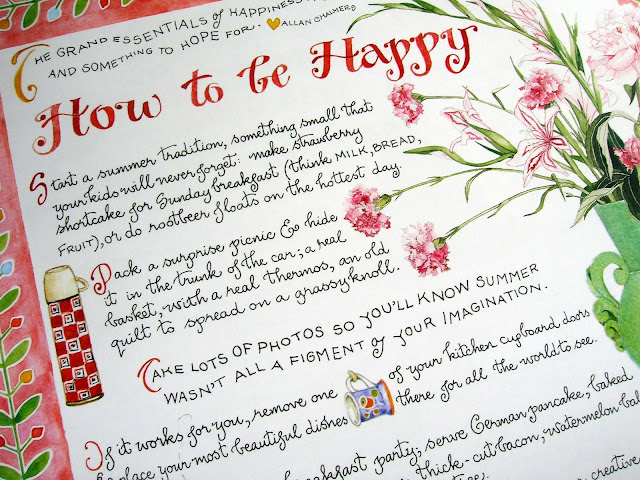 THE GRAND ESSENTIALS of HAPPINESS
AND SOMETHING TO HOPE FOR. ALLAN CHALMERS
How to be Happy
Start a summer tradition, something small that
your kids will never forget: make strawberry
shortcake for Sunday breakfast (think MILK, BREAD,
FRUIT), or do rootbeer floats on the hottest day.
Pack a surprise picnic & hide
it in the trunk of the car; a real
basket, with a real thermos, an old
quilt to spread on a grassy knoll.
TAKE LOTS OF PHOTOS SO YOU'LL KNOW SUMMER
WASN'T ALL A FIGMENT of YOUR IMAGINATION.
If it works for you, remove one of your kitchen cupboard doors
place your most beautiful dishes there for all the world to see.
party; serve German pancake, baked
thick-cut bacon, watermelon
creative